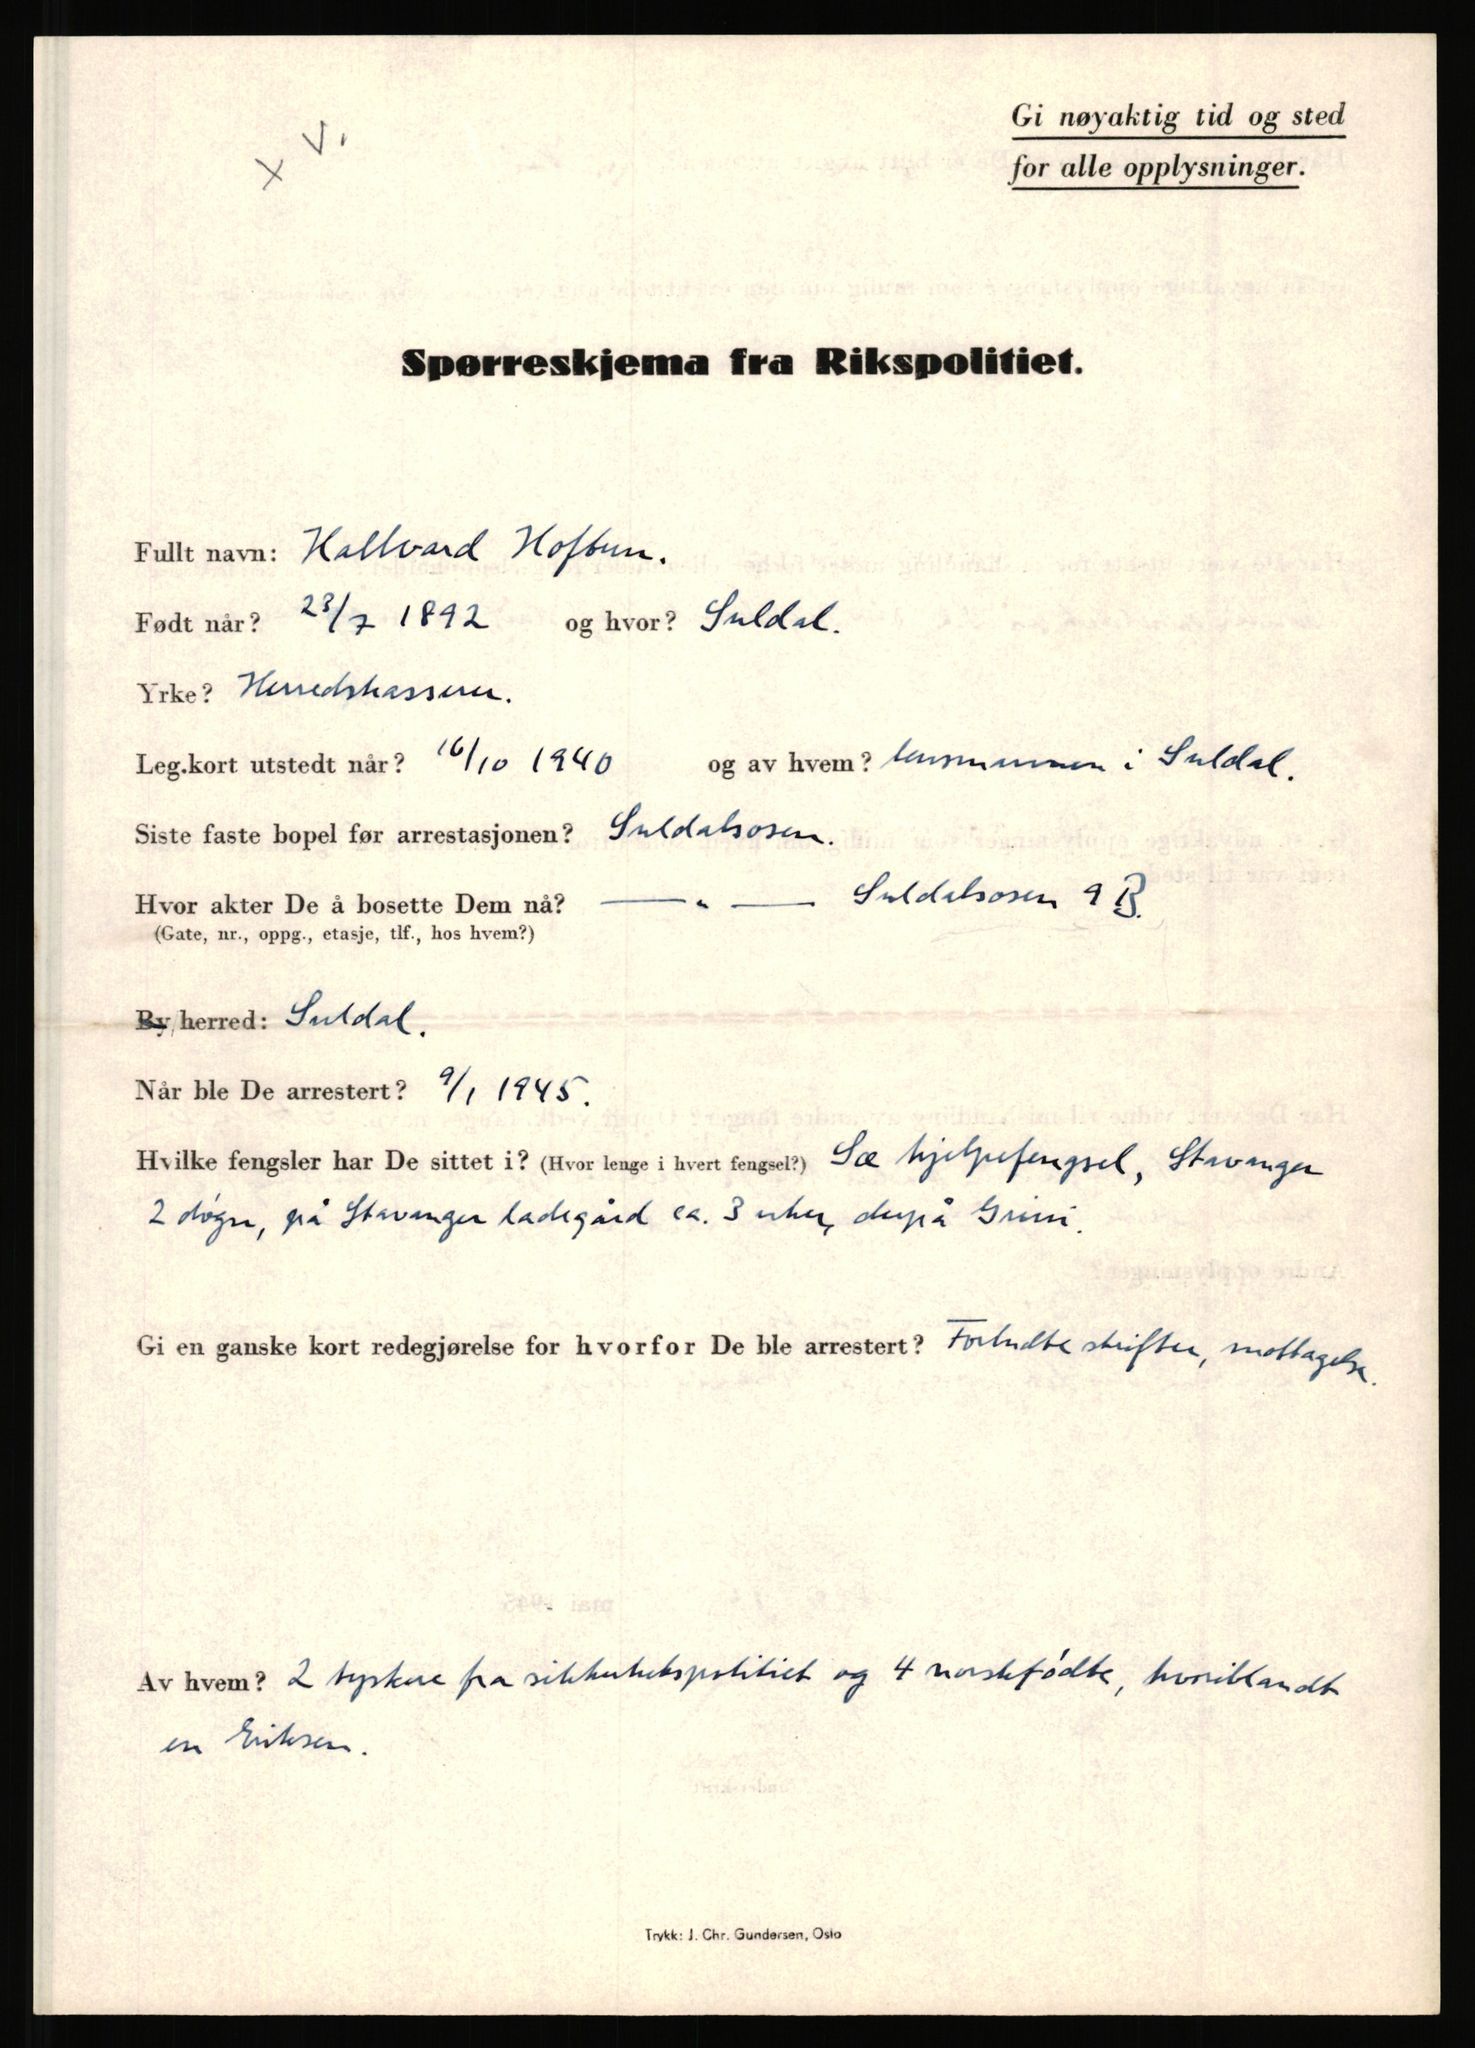 x V.
Gi nøyaktig tid og sted
for alle opplysninger.
Spørreskjema fra Rikspolitiet.
Fullt navn: Hallvard Hoftun.
Født når? 23/7 1892 og hvor? Suldal.
Yrke? Herredskasserer.
Leg.kort utstedt når? 16/10 1940 og av hvem? lensmannen i Suldal.
Siste faste bopel før arrestasjonen? Suldalsosen.
Hvor akter De å bosette Dem nå? —— „ —— Suldalsosen 9 B.
(Gate, nr., oppg., etasje, tlf., hos hvem?)
By/herred: Suldal.
Når ble De arrestert? 9/1 1945.
Hvilke fengsler har De sittet i? (Hvor lenge i hvert fengsel?) Sæ hjelpefengsel, Stavanger
2 døgn, på Stavanger ladegård ca. 3 uker, derpå Grini.
Gi en ganske kort redegjørelse for hvorfor De ble arrestert? Forbudte skrifter, mottagelse.
Av hvem? 2 tyskere fra sikkerhetspolitiet og 4 norskfødte, hvoriblandt
en Eriksen.
Trykk: J. Chr. Gundersen, Oslo